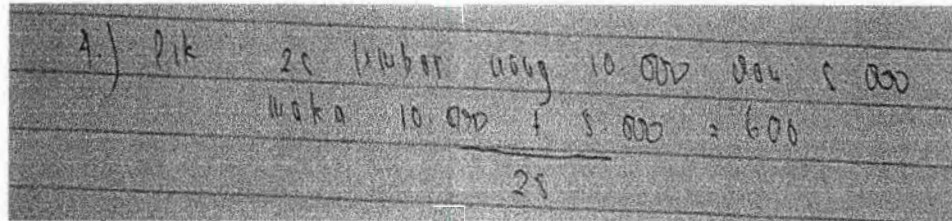 4.) Dik 25 lembar uang 10.000 dan 5.000
maka 10.000 + 5.000 = 600
25